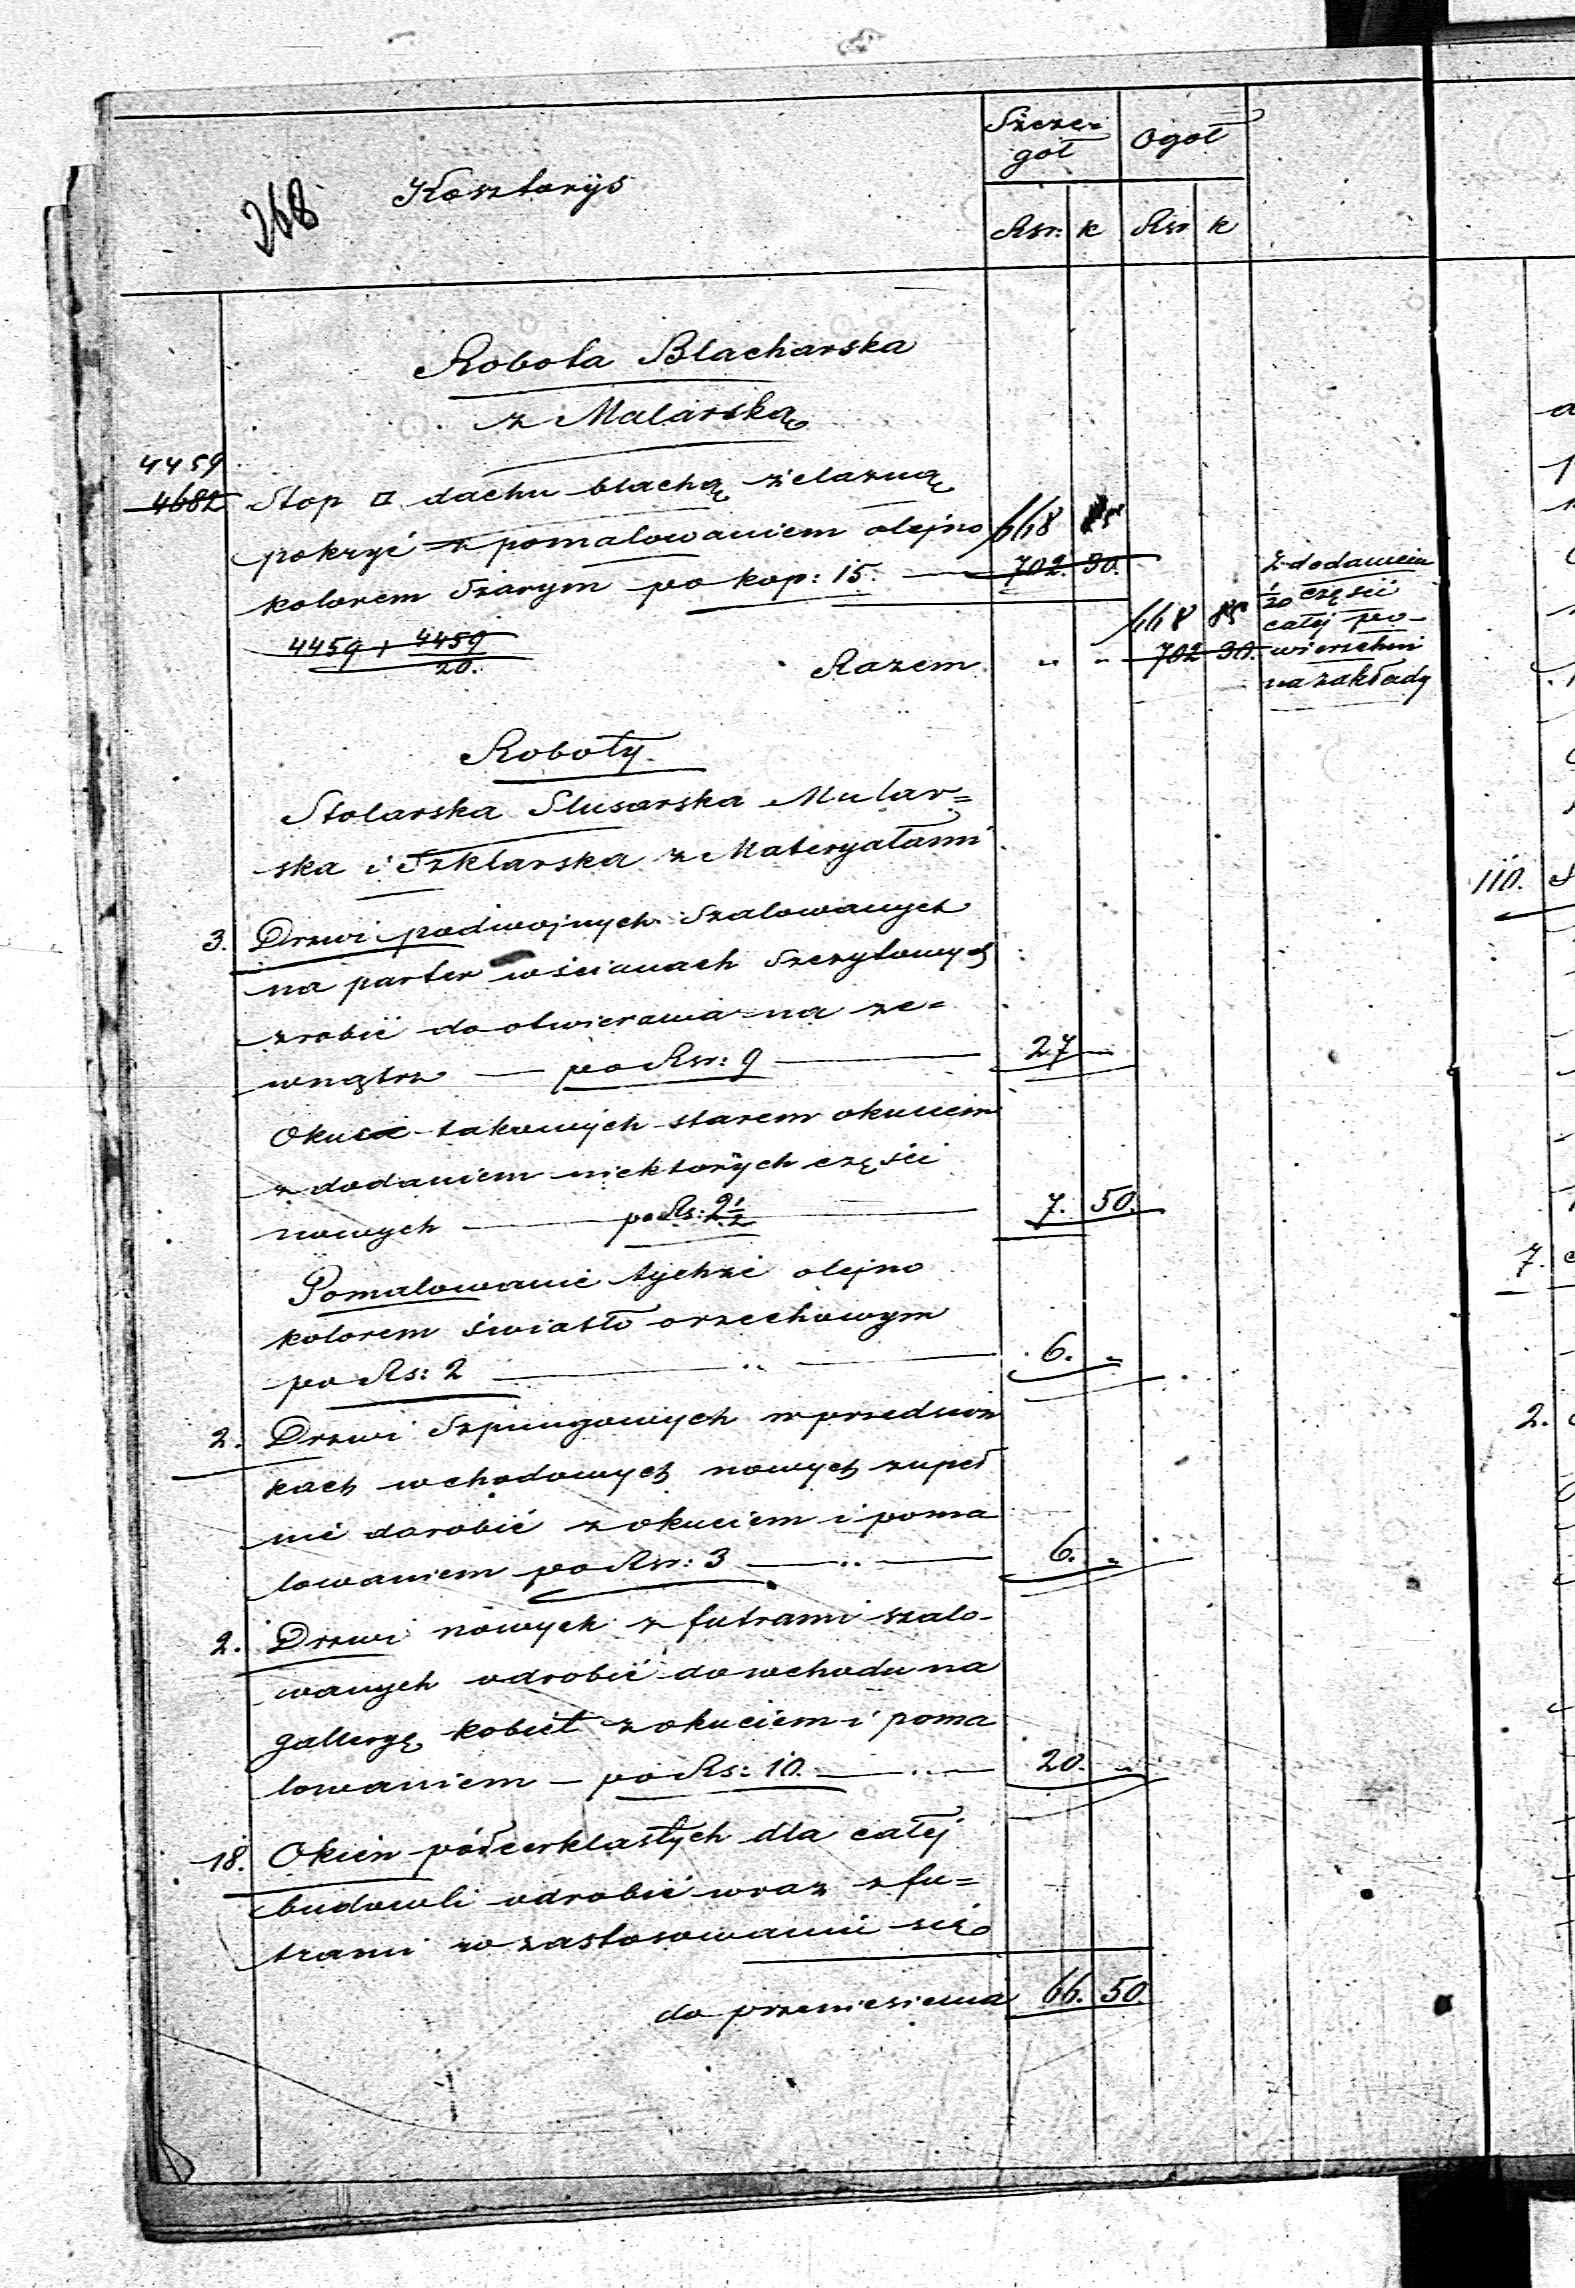 268
Kosztorys
Szcze-
gół
Ogół
Rsr: k Rsr k
Robota Blacharska
z Malarską
4459
4682 Stop □ dachu blachą żelazną
pokryć z pomalowaniem olejno 668 85
kolorem szarym po kop: 15. — 702. 30.
4459 + 4459
20.
668 85
Razem " " 702 30.
Z dodaniem
1/20 części
całej po-
wierzchni
na zakłady
Roboty.
Stolarska Slusarska Mular=
ska i Szklarska z Materyałami
3. Drzwi podwojnych szalowanych
na parter w ścianach szczytowych
zrobić do otwierania na ze=
wnątrz — po Rsr: 9 — 27 —
Okucie takowych starem okuciem
z dodaniem niektorych części
nowych — po Rs: 2 1/2 — 7. 50.
Pomalowanie tychże olejno
kolorem światło orzechowym
po Rs: 2 — " — 6. "
2. Drzwi Szpungowych w przedsion
kach wchodowych nowych zupeł
nie dorobić z okuciem i poma
lowaniem po Rsr: 3 — " — 6. "
2. Drzwi nowych z futrami szalo-
wanych odrobić do wchodu na
galleryę kobiet z okuciem i poma
lowaniem — po Rs: 10. — " — 20. "
18. Okien półcerklastych dla całej
budowli odrobić wraz z fu=
trami w zastosowaniu się
do przeniesienia 66. 50.
110.
7.
2.